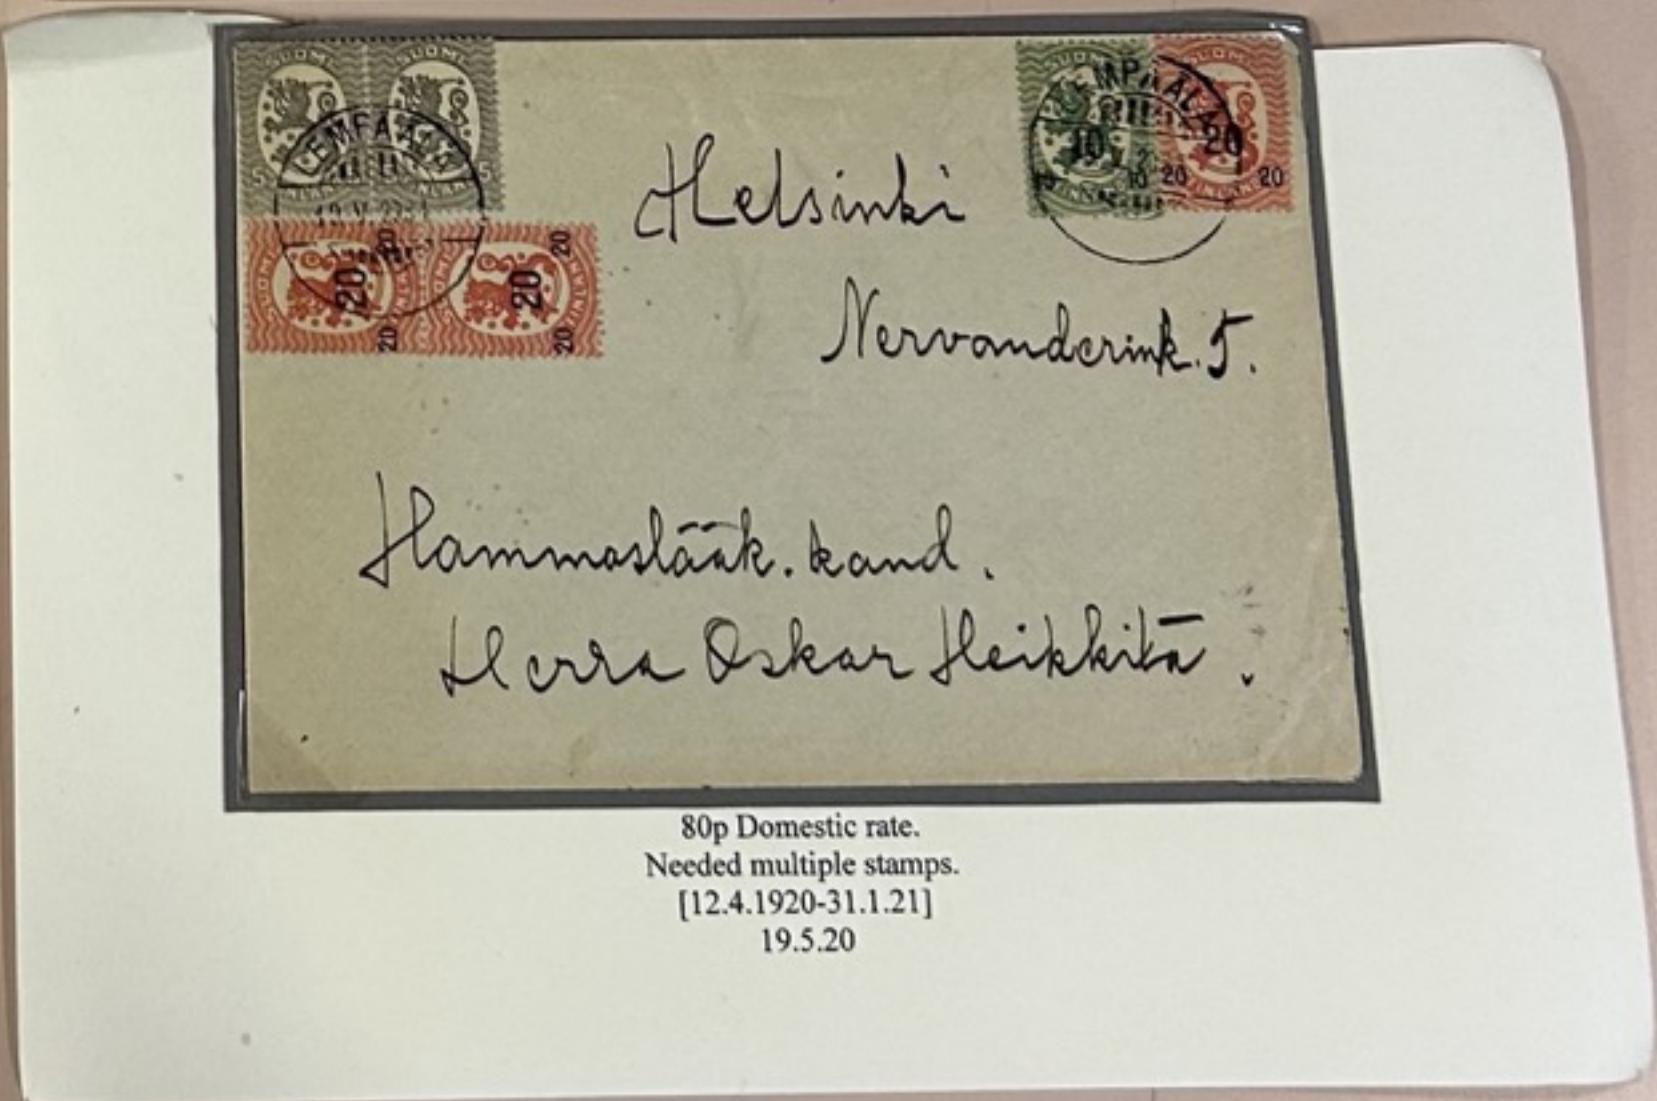 SUOMI SUOMI
5 5
LEMPÄÄLÄ
20 20 20
20 20 20
SUOMI
LEMPÄÄLÄ
10 10
20 20 20
Helsinki
Nervanderink. 5.
Hammaslääk. kand.
Herra Oskar Heikkilä.
80p Domestic rate.
Needed multiple stamps.
[12.4.1920-31.1.21]
19.5.20